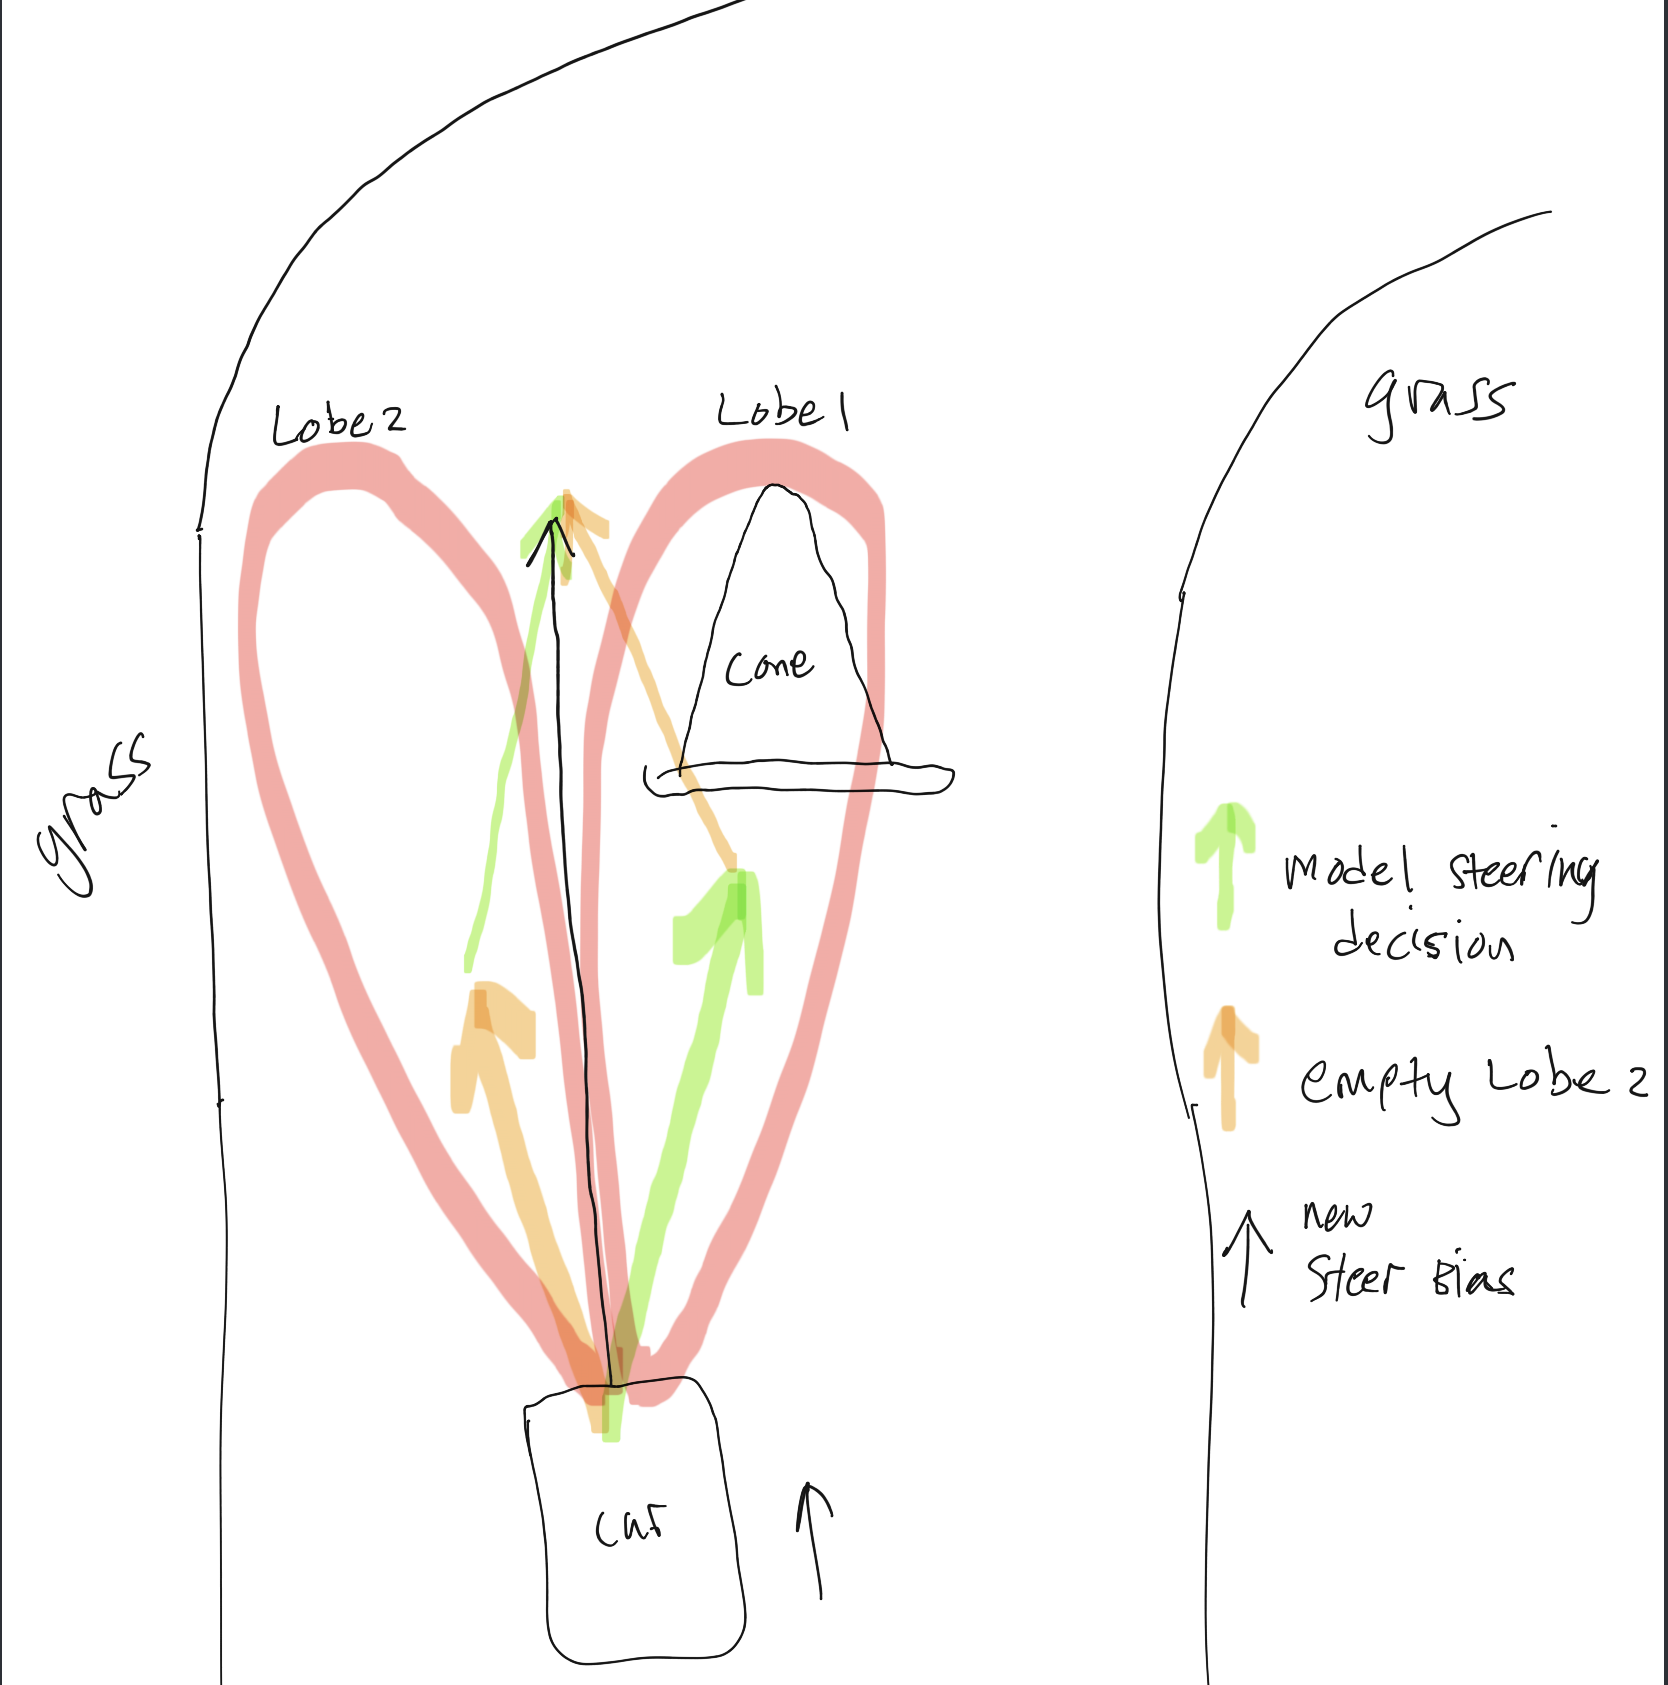 Lobe 2
Lobe 1
grass
cone
grass
Model steering
decision
empty Lobe 2
new
Steer Bias
car